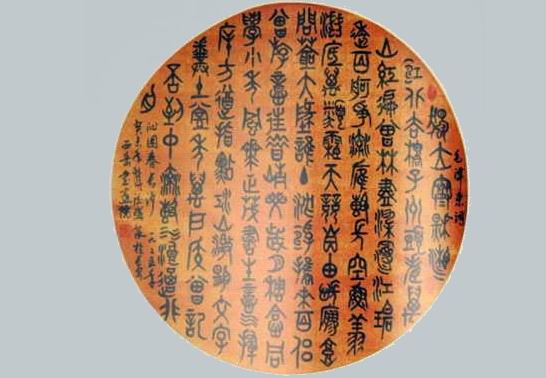 毛澤東詞
獨立寒秋湘
江北去橘子洲頭看萬
山紅遍層林盡染漫江碧
透百舸爭流鷹擊長空魚翔
淺底萬類霜天競自由悵寥廓
問蒼大地誰主沉浮攜來百侶
曾遊憶往昔崢嶸歲月稠恰同
學少年風華正茂書生意氣揮
斥方遒指點江山激揚文字
糞土當年萬戶侯曾記
否到中流擊水浪遏飛
舟
沁園春長沙 一九二五年
癸未年